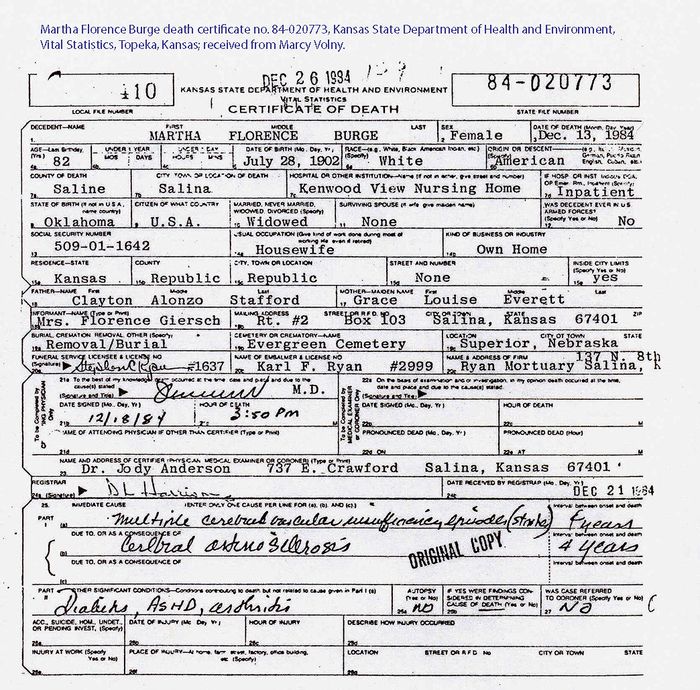 Martha Florence Burge death certificate no. 84-020773, Kansas State Department of Health and Environment,
Vital Statistics, Topeka, Kansas; received from Marcy Volny.
DEC 26 1984
110 KANSAS STATE DEPARTMENT OF HEALTH AND ENVIRONMENT 84-020773
VITAL STATISTICS
LOCAL FILE NUMBER CERTIFICATE OF DEATH STATE FILE NUMBER
DECEDENT—NAME FIRST MIDDLE LAST SEX DATE OF DEATH (Month, Day, Year)
1. MARTHA FLORENCE BURGE 2. Female 3. Dec. 13, 1984
AGE—Last Birthday (Yrs) UNDER 1 YEAR UNDER 1 DAY DATE OF BIRTH (Mo., Day, Yr.) RACE—(e.g., White, Black, American Indian, etc.) (Specify) ORIGIN OR DESCENT
MOS DAYS HOURS MINS
82 July 28, 1902 White American
COUNTY OF DEATH CITY, TOWN OR LOCATION OF DEATH HOSPITAL OR OTHER INSTITUTION—Name (If not in either, give street and number) IF HOSP. OR INST. Indicate DOA, OP/Emer. Rm., Inpatient (Specify)
7a Saline Salina Kenwood View Nursing Home Inpatient
STATE OF BIRTH (If not in U.S.A., name country) CITIZEN OF WHAT COUNTRY MARRIED, NEVER MARRIED, WIDOWED, DIVORCED (Specify) SURVIVING SPOUSE (If wife give maiden name) WAS DECEDENT EVER IN U.S. ARMED FORCES?
Oklahoma U.S.A. Widowed None No
SOCIAL SECURITY NUMBER USUAL OCCUPATION (Give kind of work done during most of working life even if retired) KIND OF BUSINESS OR INDUSTRY
509-01-1642 Housewife Own Home
RESIDENCE—STATE COUNTY CITY, TOWN OR LOCATION STREET AND NUMBER INSIDE CITY LIMITS (Specify Yes or No)
15a Kansas Republic Republic None yes
FATHER—NAME First Middle Last MOTHER—MAIDEN NAME First Middle Last
Clayton Alonzo Stafford Grace Louise Everett
INFORMANT—NAME (Type or Print) MAILING ADDRESS STREET OR R.F.D. NO. CITY OR TOWN STATE ZIP
Mrs. Florence Giersch Rt. #2 Box 103 Salina, Kansas 67401
BURIAL, CREMATION, REMOVAL, OTHER (Specify) CEMETERY OR CREMATORY—NAME LOCATION CITY OR TOWN STATE
Removal/Burial Evergreen Cemetery Superior, Nebraska
FUNERAL SERVICE LICENSEE & LICENSE NO NAME OF EMBALMER & LICENSE NO NAME & ADDRESS OF FIRM 137 N. 8th
(Signature) #1637 Karl F. Ryan #2999 Ryan Mortuary Salina, K
To be Completed by CERTIFYING PHYSICIAN Only
21a To the best of my knowledge, death occurred at the time, date and place and due to the cause(s) stated
(Signature and Title) M.D.
DATE SIGNED (Mo., Day, Yr.) HOUR OF DEATH
12/18/84 3:50 PM
NAME OF ATTENDING PHYSICIAN IF OTHER THAN CERTIFIER (Type or Print)
To be Completed by MEDICAL EXAMINER or CORONER Only
22a On the basis of examination and/or investigation, in my opinion death occurred at the time, date and place and due to the cause(s) stated.
(Signature and Title)
DATE SIGNED (Mo., Day, Yr.) HOUR OF DEATH
PRONOUNCED DEAD (Mo., Day, Yr.) PRONOUNCED DEAD (Hour)
22d ON 22e AT M
NAME AND ADDRESS OF CERTIFIER (PHYSICIAN, MEDICAL EXAMINER OR CORONER) (Type or Print)
Dr. Jody Anderson 737 E. Crawford Salina, Kansas 67401
REGISTRAR DATE RECEIVED BY REGISTRAR (Mo., Day, Yr.)
24a (Signature) DEC 21 1984
25. IMMEDIATE CAUSE [ENTER ONLY ONE CAUSE PER LINE FOR (a), (b), AND (c).] Interval between onset and death
PART I (a) Multiple cerebral vascular insufficiency episodes (strokes) years
DUE TO, OR AS A CONSEQUENCE OF Interval between onset and death
(b) Cerebral arteriosclerosis 4 years
DUE TO, OR AS A CONSEQUENCE OF Interval between onset and death
(c)
ORIGINAL COPY
PART II OTHER SIGNIFICANT CONDITIONS—Conditions contributing to death but not related to cause given in Part I (a) AUTOPSY (Yes or No) IF YES WERE FINDINGS CONSIDERED IN DETERMINING CAUSE OF DEATH (Yes or No) WAS CASE REFERRED TO CORONER (Specify Yes or No)
Diabetes, ASHD, arthritis 26a No 26b 27 No
ACC., SUICIDE, HOM., UNDET., OR PENDING INVEST. (Specify) DATE OF INJURY (Mo., Day, Yr.) HOUR OF INJURY DESCRIBE HOW INJURY OCCURRED
INJURY AT WORK (Specify Yes or No) PLACE OF INJURY—At home, farm, street, factory, office building, etc. (Specify) LOCATION STREET OR R.F.D. No CITY OR TOWN STATE